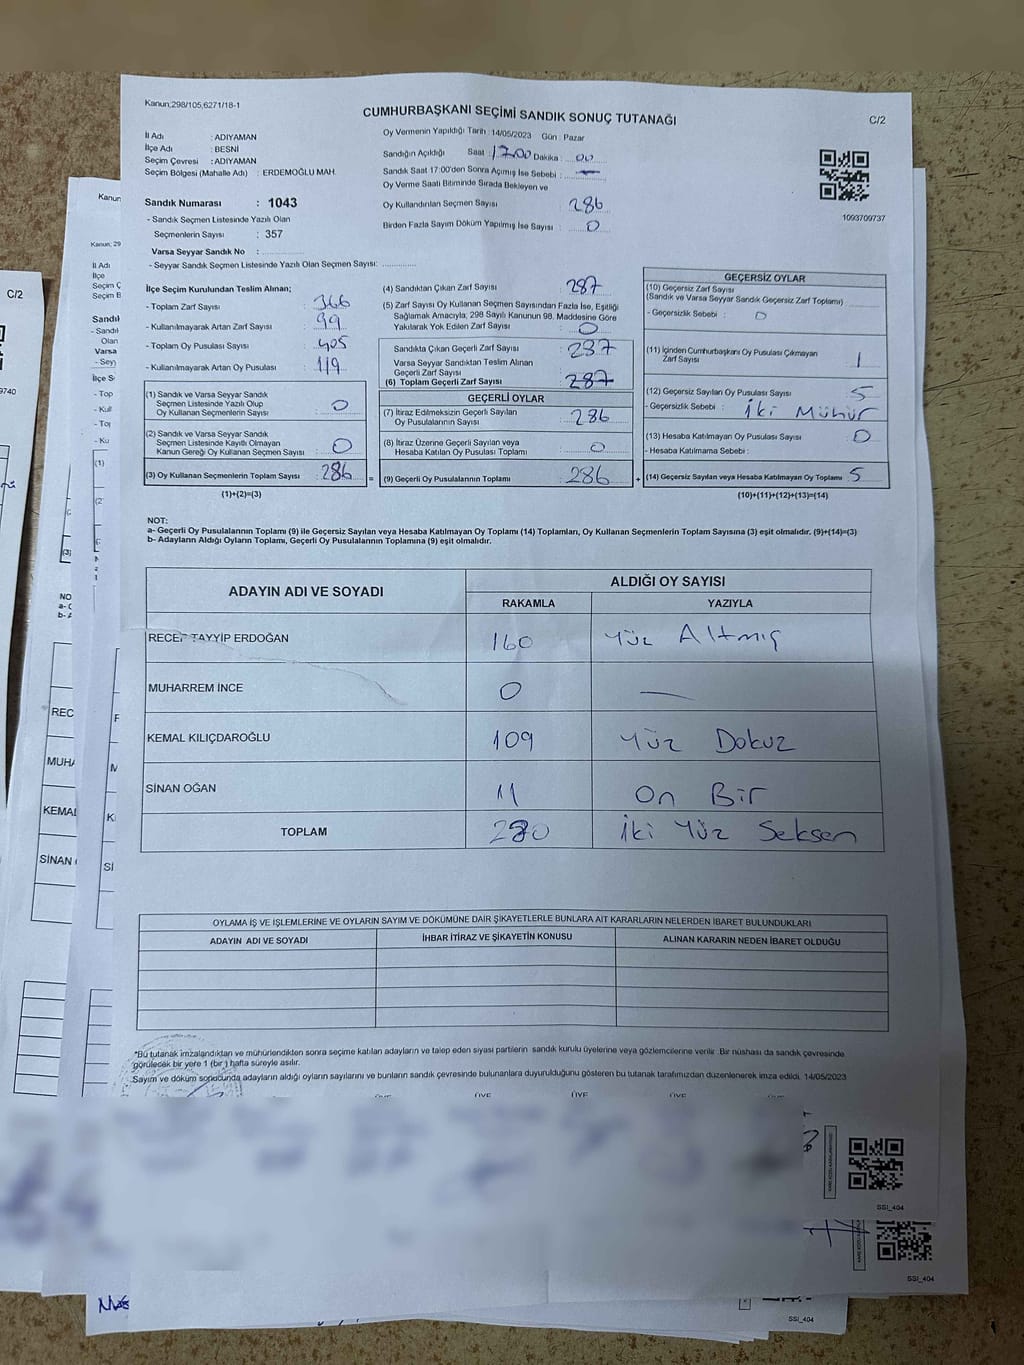 Kanun;298/105,6271/18-1
CUMHURBAŞKANI SEÇİMİ SANDIK SONUÇ TUTANAĞI
C/2
İl Adı : ADIYAMAN
İlçe Adı : BESNİ
Seçim Çevresi : ADIYAMAN
Seçim Bölgesi (Mahalle Adı) : ERDEMOĞLU MAH.
Oy Vermenin Yapıldığı Tarih : 14/05/2023 Gün : Pazar
Sandığın Açıldığı Saat : 1700 Dakika : 00
Sandık Saat 17:00'den Sonra Açımış İse Sebebi : —
Oy Verme Saati Bitiminde Sırada Bekleyen ve
Oy Kullandırılan Seçmen Sayısı 286
Birden Fazla Sayım Döküm Yapılmış İse Sayısı : 0
1093709737
Sandık Numarası : 1043
- Sandık Seçmen Listesinde Yazılı Olan
Seçmenlerin Sayısı : 357
Varsa Seyyar Sandık No :
- Seyyar Sandık Seçmen Listesinde Yazılı Olan Seçmen Sayısı:
İlçe Seçim Kurulundan Teslim Alınan;
- Toplam Zarf Sayısı : 366
- Kullanılmayarak Artan Zarf Sayısı : 99
- Toplam Oy Pusulası Sayısı : 405
- Kullanılmayarak Artan Oy Pusulası : 119
(1) Sandık ve Varsa Seyyar Sandık
Seçmen Listesinde Yazılı Olup
Oy Kullanan Seçmenlerin Sayısı : 0
(2) Sandık ve Varsa Seyyar Sandık
Seçmen Listesinde Kayıtlı Olmayan
Kanun Gereği Oy Kullanan Seçmen Sayısı : 0
(3) Oy Kullanan Seçmenlerin Toplam Sayısı : 286
(1)+(2)=(3)
(4) Sandıktan Çıkan Zarf Sayısı : 287
(5) Zarf Sayısı Oy Kullanan Seçmen Sayısından Fazla İse, Eşitliği
Sağlamak Amacıyla; 298 Sayılı Kanunun 98. Maddesine Göre
Yakılarak Yok Edilen Zarf Sayısı : 0
Sandıkta Çıkan Geçerli Zarf Sayısı : 287
Varsa Seyyar Sandıktan Teslim Alınan
Geçerli Zarf Sayısı :
(6) Toplam Geçerli Zarf Sayısı : 287
GEÇERLİ OYLAR
(7) İtiraz Edilmeksizin Geçerli Sayılan
Oy Pusulalarının Sayısı : 286
(8) İtiraz Üzerine Geçerli Sayılan veya
Hesaba Katılan Oy Pusulası Toplamı : 0
= (9) Geçerli Oy Pusulalarının Toplamı : 286
GEÇERSİZ OYLAR
(10) Geçersiz Zarf Sayısı
(Sandık ve Varsa Seyyar Sandık Geçersiz Zarf Toplamı)
- Geçersizlik Sebebi : 0
(11) İçinden Cumhurbaşkanı Oy Pusulası Çıkmayan
Zarf Sayısı : 1
(12) Geçersiz Sayılan Oy Pusulası Sayısı : 5
- Geçersizlik Sebebi : İki Mühür
(13) Hesaba Katılmayan Oy Pusulası Sayısı : 0
- Hesaba Katılmama Sebebi :
+ (14) Geçersiz Sayılan veya Hesaba Katılmayan Oy Toplamı : 5
(10)+(11)+(12)+(13)=(14)
NOT:
a- Geçerli Oy Pusulalarının Toplamı (9) ile Geçersiz Sayılan veya Hesaba Katılmayan Oy Toplamı (14) Toplamları, Oy Kullanan Seçmenlerin Toplam Sayısına (3) eşit olmalıdır. (9)+(14)=(3)
b- Adayların Aldığı Oyların Toplamı, Geçerli Oy Pusulalarının Toplamına (9) eşit olmalıdır.
ADAYIN ADI VE SOYADI
ALDIĞI OY SAYISI
RAKAMLA YAZIYLA
RECEP TAYYİP ERDOĞAN 160 Yüz Altmış
MUHARREM İNCE 0 —
KEMAL KILIÇDAROĞLU 109 Yüz Dokuz
SİNAN OĞAN 11 On Bir
TOPLAM 280 İki Yüz Seksen
OYLAMA İŞ VE İŞLEMLERİNE VE OYLARIN SAYIM VE DÖKÜMÜNE DAİR ŞİKAYETLERLE BUNLARA AİT KARARLARIN NELERDEN İBARET BULUNDUKLARI
ADAYIN ADI VE SOYADI İHBAR İTİRAZ VE ŞİKAYETİN KONUSU ALINAN KARARIN NEDEN İBARET OLDUĞU
*Bu tutanak imzalandıktan ve mühürlendikten sonra seçime katılan adayların ve talep eden siyasi partilerin sandık kurulu üyelerine veya gözlemcilerine verilir. Bir nüshası da sandık çevresinde
görülecek bir yere 1 (bir ) hafta süreyle asılır.
Sayım ve döküm sonucunda adayların aldığı oyların sayılarını ve bunların sandık çevresinde bulunanlara duyurulduğunu gösteren bu tutanak tarafımızdan düzenlenerek imza edildi. 14/05/2023
ÜYE ÜYE ÜYE
SSI_404
SSI_404
SSI_404
C/2
9740